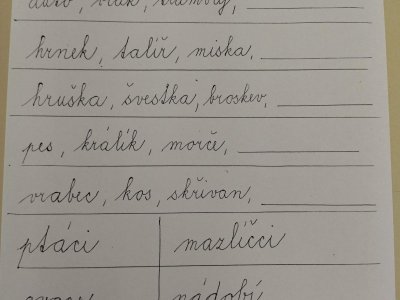 auto, vlak, tramvaj,
hrnek, talíř, miska,
hruška, švestka, broskev,
pes, králík, morče,
vrabec, kos, skřivan,
ptáci mazlíčci
ovoce nádobí